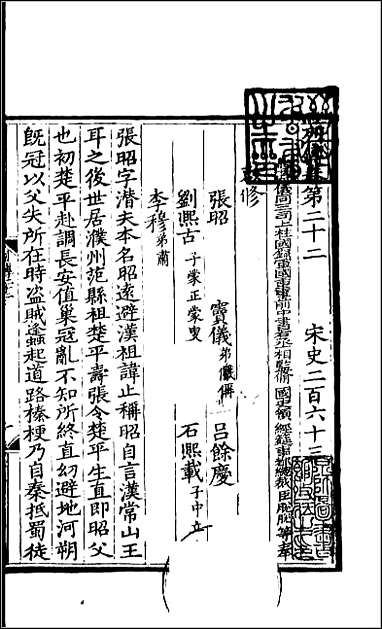 第二十二 宋史二百六十三
儀同三司上柱國錄軍國重事前中書右丞相監修國史領經筵事都總裁臣脫脫等奉
修
張昭 竇儀弟儼偁 呂餘慶
劉熙古子蒙正蒙叟 石熙載子中立
李穆弟肅
張昭字潜夫本名昭遠避漢祖諱止稱昭自言漢常山王
耳之後世居濮州范縣祖楚平壽張令楚平生直即昭父
也初楚平赴調長安值巢寇亂不知所終直幼避地河朔
既冠以父失所在時盗賊蟻起道路榛梗乃自秦抵蜀徒